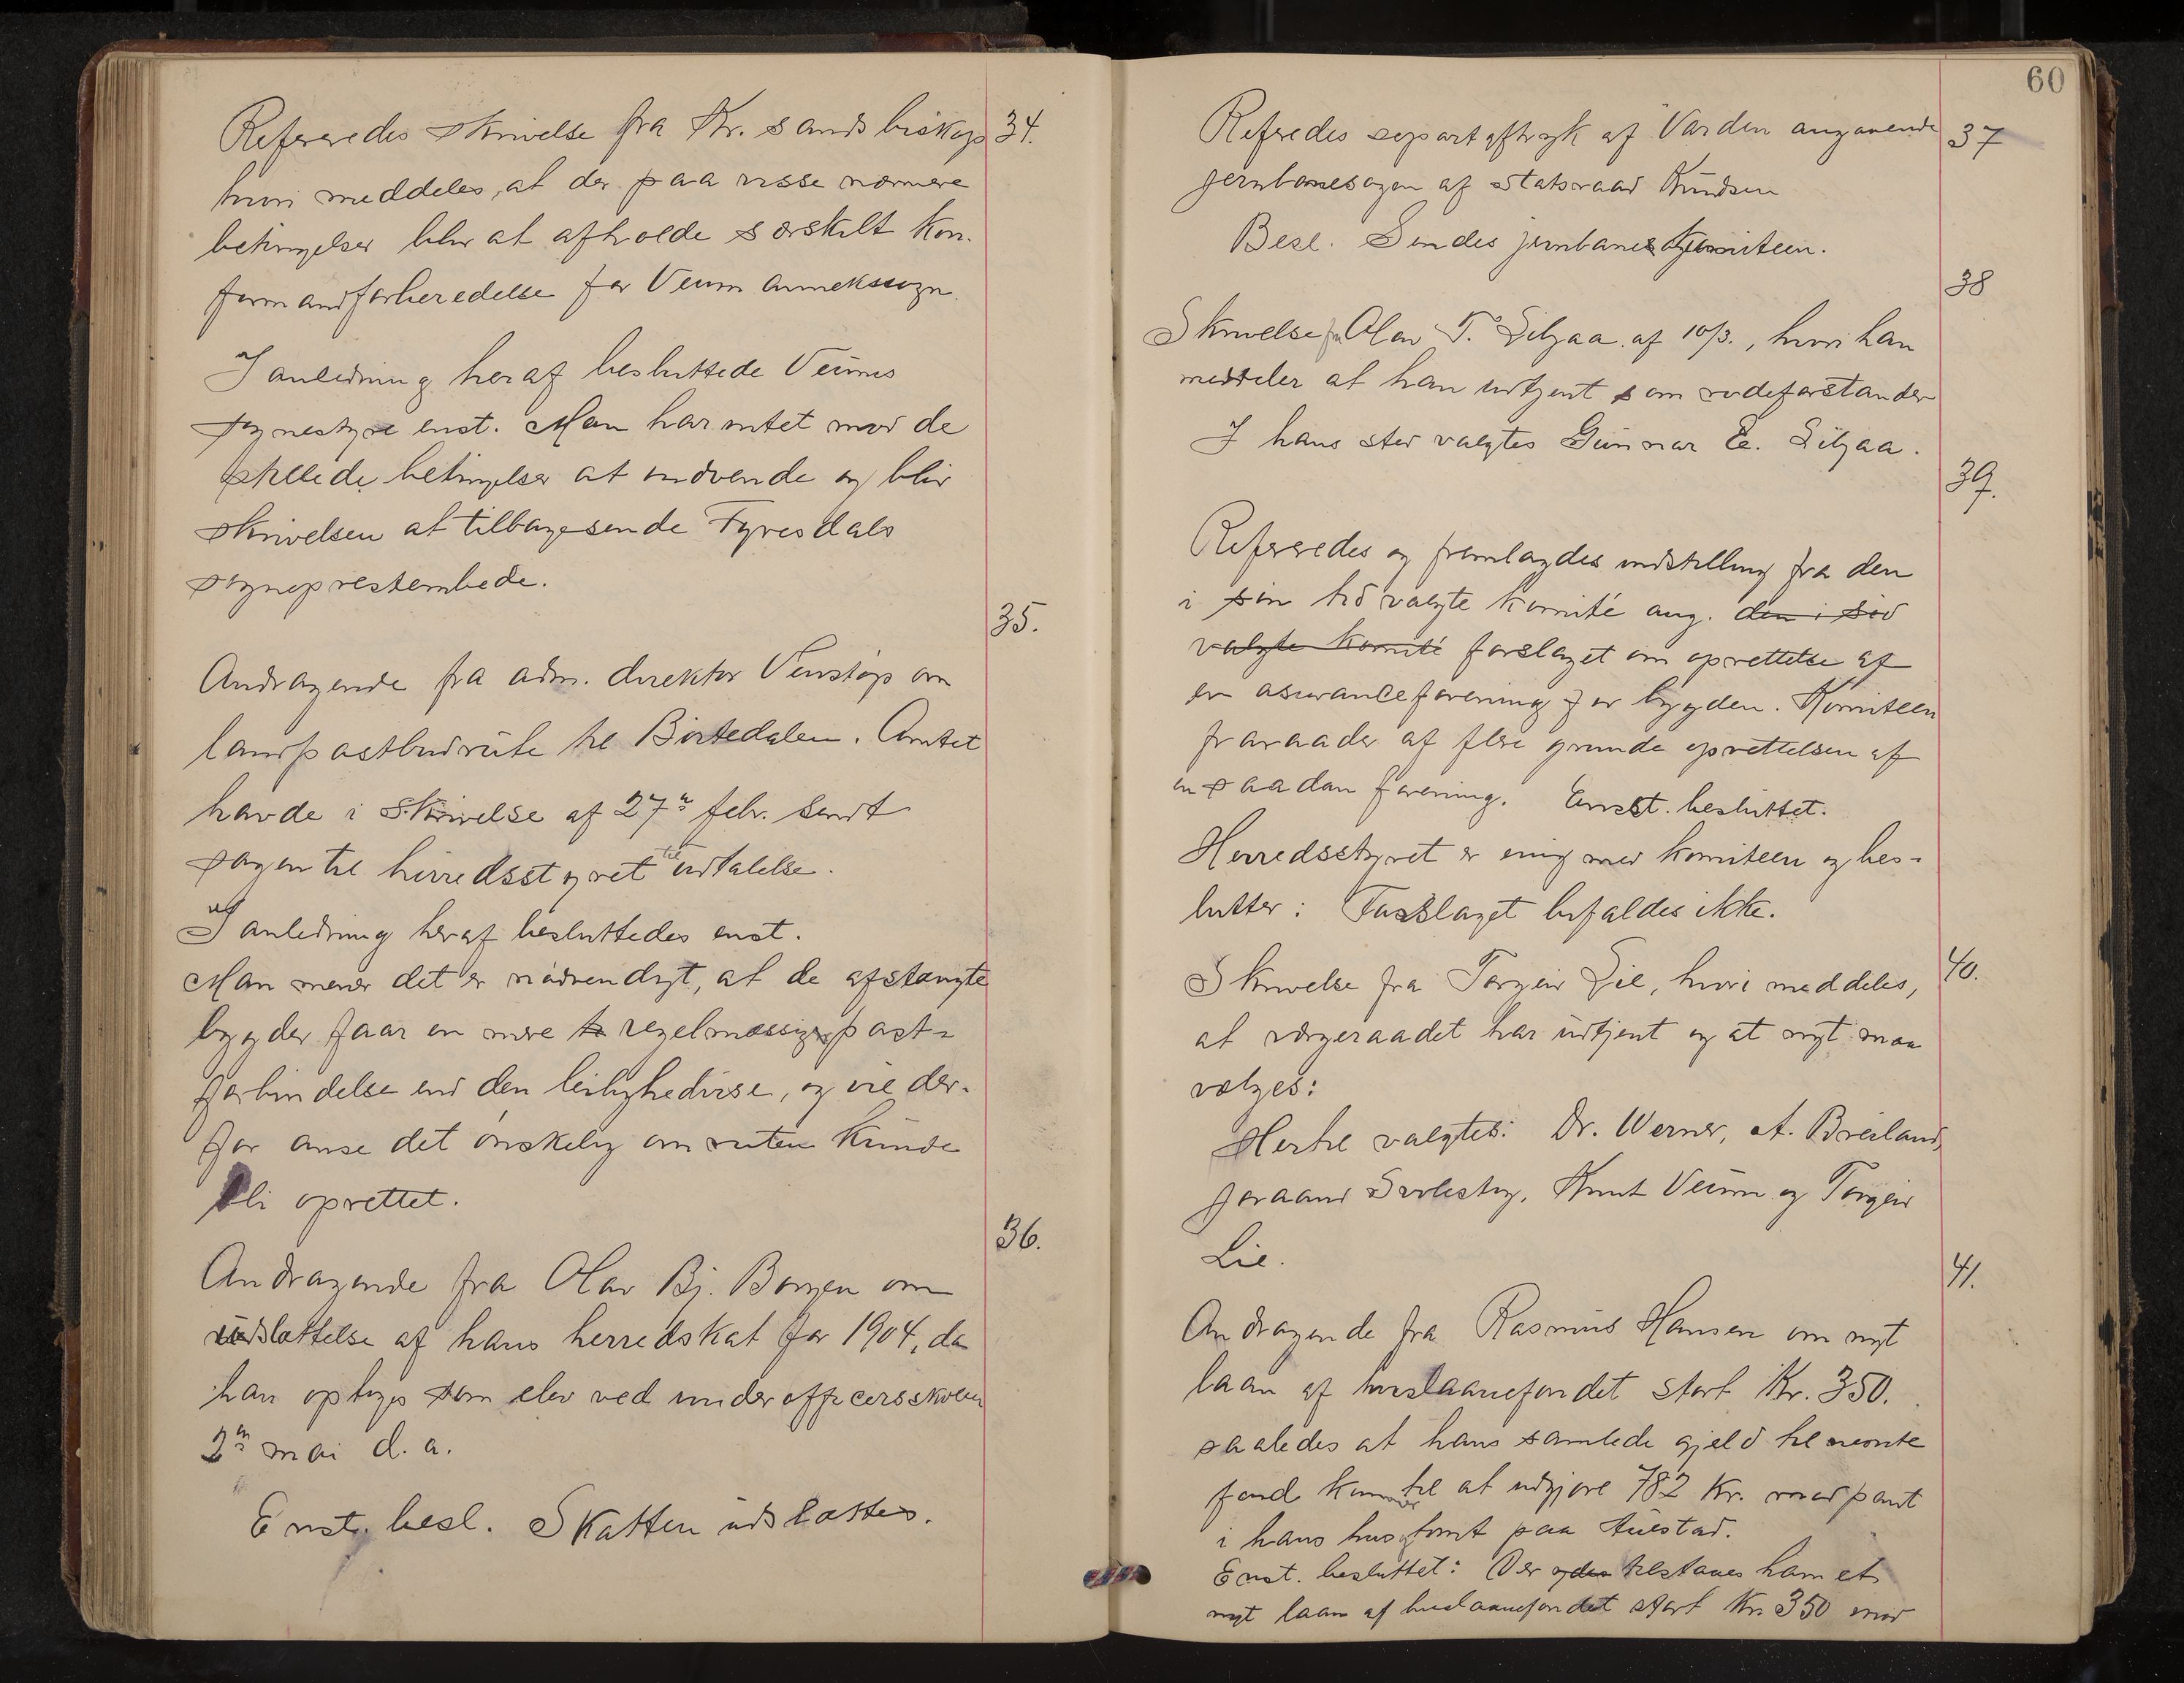 Refereredes skrivelse fra Kr.sands biskop 34.
hvori meddeles, at der paa visse nærmere
betingelser blir at afholde særskilt kon-
firmandforberedelse for Veum annekssogn.
I anledning heraf besluttede Veums
sognestyre enst. Man har intet mod de
stillede betingelser at indvende og blir
skrivelsen at tilbagesende Fyresdals
sogneprestembede.
35.
Andragende fra adm. direktør Venstøp om
landpostbudrute til Birtedalen. Amtet
havde i skrivelse af 27de febr. sendt
sagen til herredsstyret til udtalelse.
I anledning heraf besluttedes enst.
Man mener det er nødvendigt, at de afstængte
bygder faar en mere regelmæssig post-
forbindelse end den leilighedsvise, og vil der-
for anse det ønskelig om ruten kunde
bli oprettet.
36.
Andragende fra Olav Bj. Borgen om
udslættelse af hans herredskat for 1904, da
han optoges som elev ved underofficersskolen
2den mai d. a.
Enst. besl. Skatten udslættes.
60
Referedes separtaftryk af Varden angaaende 37
jernbanesagen af statsraad Knudsen
Besl. Sendes jernbanekomiteen.
38
Skrivelse fra Olav T. Liljaa af 10/3., hvori han
meddeler at han udtjent som rodeforstander
I hans sted valgtes Gunnar E. Liljaa.
39.
Refereredes og fremlagdes indstilling fra den
i sin tid valgte komité ang. den i sid
valgte komité forslaget om oprettelse af
en assuranceforening for bygden. Komiteen
fraraader af flere grunde oprettelsen af
en saadan forening. Enst. besluttet.
Herredsstyret er enig med komiteen og bes-
lutter: Forslaget bifaldes ikke.
Skrivelse fra Torgeir Lie, hvori meddeles, 40.
at værgeraadet har udtjent og at nyt maa
vælges:
Hertil valgtes: Dr. Werner, A. Breiland,
Joraand Svolestøg, Knut Veum og Torgeir
Lie.
41.
Andragende fra Rasmus Hansen om nyt
laan af huslaanefondet stort Kr. 350.
saaledes at hans samlede gjeld til nevnte
fond kommer til at udgjøre 782 Kr. mod pant
i hans hus og tomt paa Austad.
Enst. besluttet: Der ydes tilstaaes ham et
nyt laan af huslaanefondet stort Kr. 350 mod